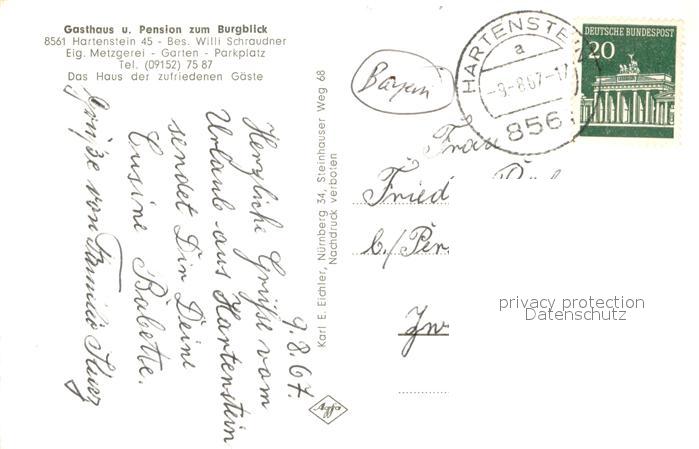 Gasthaus u. Pension zum Burgblick
8561 Hartenstein 45 - Bes. Willi Schraudner
Eig. Metzgerei - Garten - Parkplatz
Tel. (09152) 75 87
Das Haus der zufriedenen Gäste
9.8.67.
Herzliche Grüße vom
Urlaub aus Hartenstein
sendet Dir Deine
Cusine Babette.
Grüße von Familie
Karl E. Eichler, Nürnberg 34, Steinhauser Weg 68
Nachdruck verboten
Agfa
Bayern
HARTENSTEIN
a
-9-8.67-17
856
DEUTSCHE BUNDESPOST
20
Frau
Fried
b./Per
Zw
privacy protection
Datenschutz